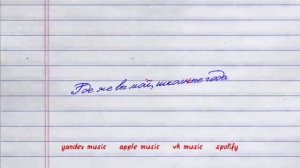 Где же вы мои, школьные года
yandex music apple music vk music spotify